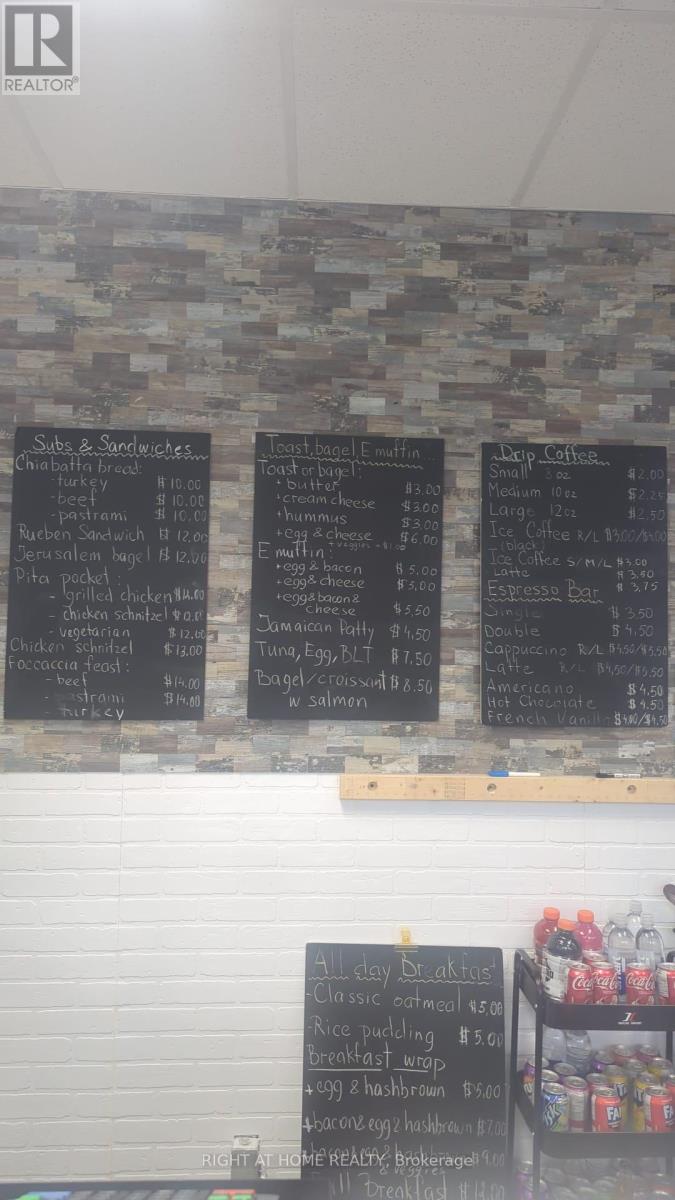 R
REALTOR®
Subs & Sandwiches
Chiabatta bread:
-turkey $10.00
-beef $10.00
-pastrami $10.00
Rueben Sandwich $12.00
Jerusalem bagel $12.00
Pita pocket:
- grilled chicken
- chicken schnitzel
- vegetarian $12.00
Chicken schnitzel $13.00
Foccaccia feast:
- beef $14.00
- pastrami $14.00
- turkey
Toast, bagel, E muffin
Toast or bagel:
+ butter $3.00
+ cream cheese $3.00
+ hummus $3.00
+ egg & cheese $6.00
+ veggies + $1.00
E muffin:
+ egg & bacon $5.00
+ egg & cheese $5.00
+ egg & bacon &
cheese $5.50
Jamaican Patty $4.50
Tuna, Egg, BLT $7.50
Bagel/croissant $8.50
w salmon
Drip Coffee
Small oz $2.00
Medium 10 oz $2.25
Large 12 oz $2.50
Ice Coffee R/L $3.00/$4.00
(black)
Ice Coffee S/M/L $3.00
Latte $3.50
$3.75
Espresso Bar
Single $3.50
Double $4.50
Cappuccino R/L $4.50/$5.50
Latte R/L $4.50/$5.50
Americano $4.50
Hot Chocolate $4.50
French Vanilla $4.00/$4.50
All day Breakfast
-Classic oatmeal $5.00
-Rice pudding $5.00
Breakfast wrap
+ egg & hashbrown $5.00
+ bacon & egg & hashbrown $7.00
+ bacon & egg & hashbrown $9.00
& veggies
Full Breakfast
Coca-Cola
Coca-Cola
Coca-Cola
RIGHT AT HOME REALTY, Brokerage